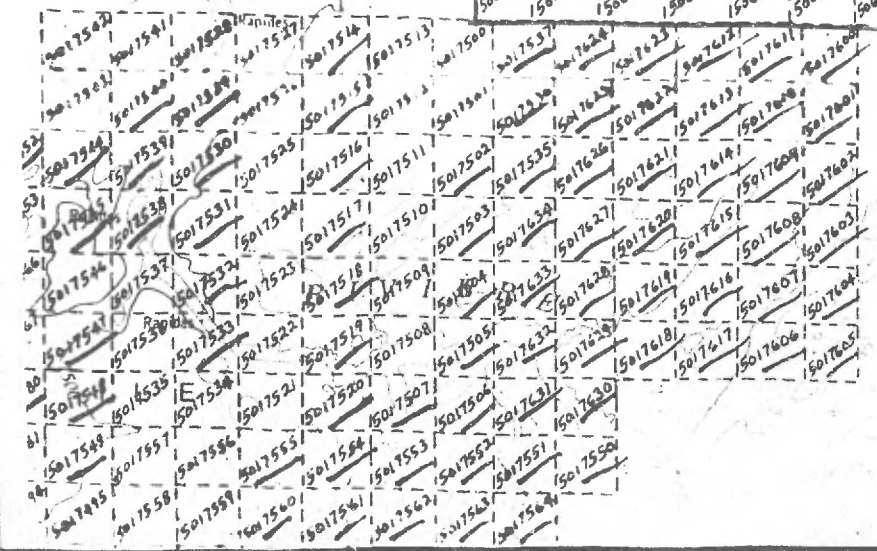 Rapides
5017542 5017541 5017528 5017527 5017514 5017513 5017500 5017537 5017624 5017623 5017612 5017611 5017600
5017540 5017529 5017515 5017501 5017625 5017622 5017613 5017610 5017601
52 5017544 5017539 5017530 5017525 5017516 5017511 5017502 5017535 5017626 5017621 5017614 5017609 5017602
53 5017538 5017531 5017524 5017517 5017510 5017503 5017634 5017627 5017620 5017615 5017608 5017603
Rapides
5017546 5017537 5017532 5017523 5017518 5017509 5017504 5017633 5017628 5017619 5017616 5017607 5017604
R I V I È R E
5017547 5017536 5017533 5017522 5017519 5017508 5017505 5017632 5017629 5017618 5017617 5017606 5017605
Rapides
80 5017548 5017535 5017534 5017521 5017520 5017507 5017506 5017631 5017630
E
81 5017549 5017557 5017556 5017555 5017554 5017553 5017552 5017551 5017550
5017495 5017558 5017559 5017560 5017561 5017562 5017563 5017564